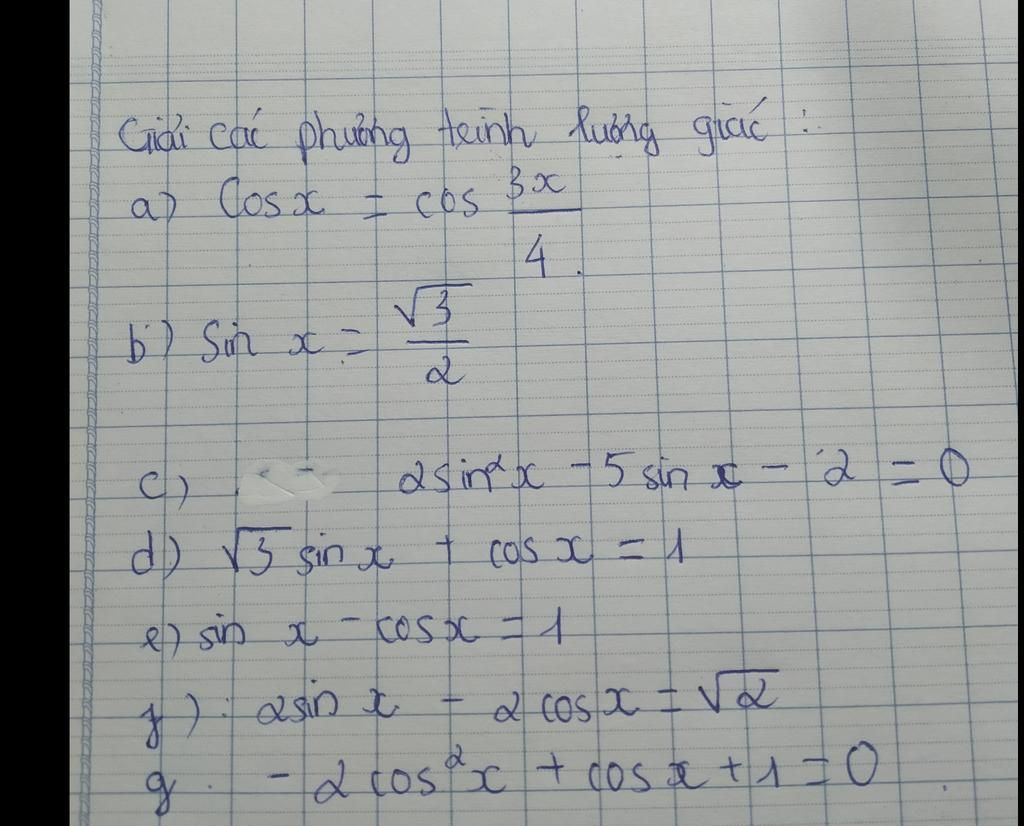 Giải các phương trình lượng giác :
a) Cosx = cos 3x/4.
b) Sin x = √3/2
c) 2sin²x - 5 sin x - 2 = 0
d) √3 sin x + cos x = 1
e) sin x - cosx = 1
f) 2sin x - 2 cos x = √2
g. - 2 cos²x + cos x + 1 = 0